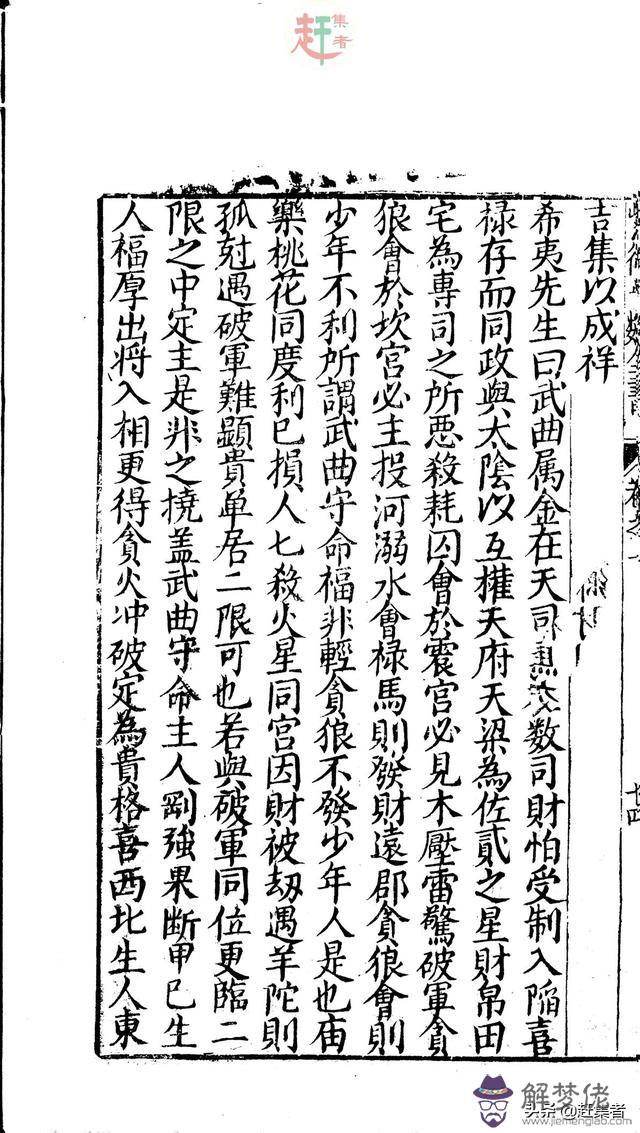 集者
赶
吉集以成祥
希夷先生曰武曲属金在天司数司財怕受制入陥喜
禄存而同政與太陰以互權天府天梁為佐貳之星財帛田
宅為專司之所惡殺耗囚會於震宮必見木壓雷驚破軍貪
狼會於坎宮必主投河溺水會祿馬則發財遠郡貪狼會則
少年不利所謂武曲守命福非輕貪狼不發少年人是也庙
樂桃花同度利已損人七殺火星同宮因財被刧遇羊陀則
孤尅遇破軍難顕貴单居二限可也若與破軍同位更臨二
限之中定主是非之撓盖武曲守命主人剛強果断甲已生
人福厚出將入相更得貪火冲破定為貴格喜西北生人東
十四
解梦佬
头条@赶集者
www.jiemenglao.com